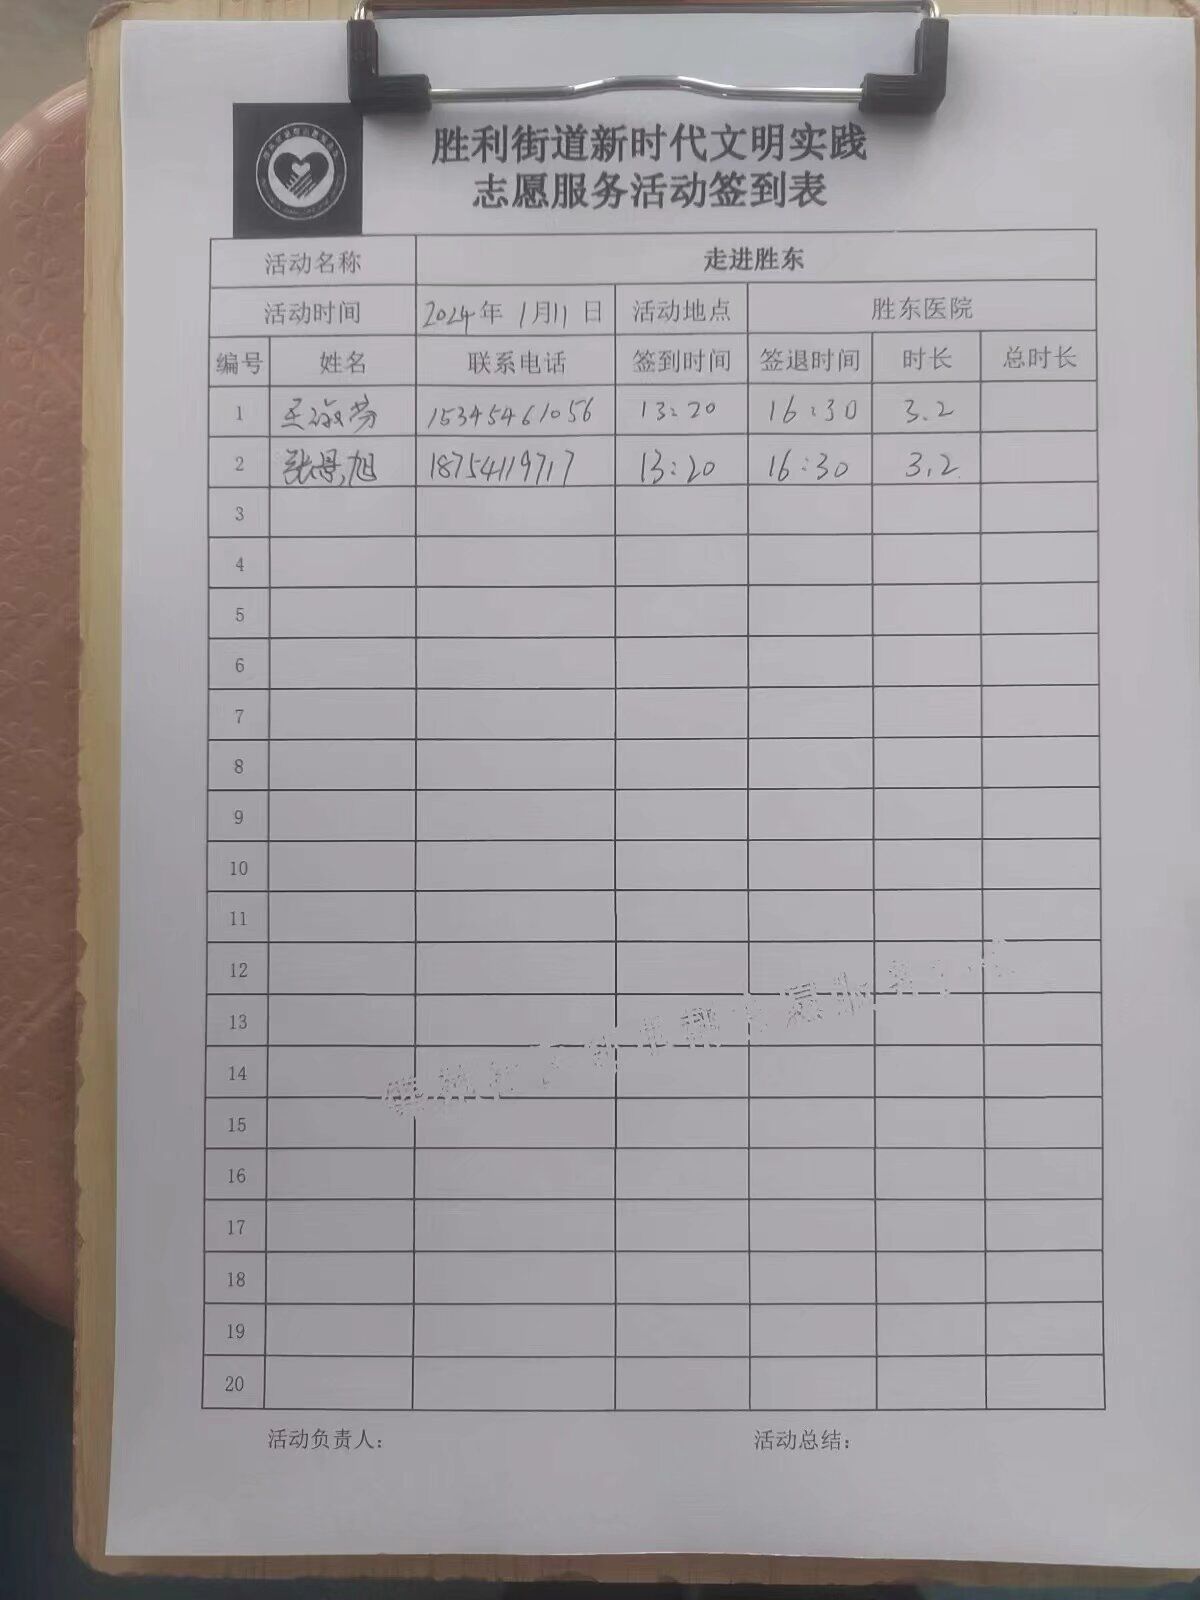 胜利街道新时代文明实践
志愿服务活动签到表
活动名称 走进胜东
活动时间 2024年 1月11日 活动地点 胜东医院
编号 姓名 联系电话 签到时间 签退时间 时长 总时长
1 王淑芳 15345461056 13:20 16:30 3.2
2 张恩旭 18754119717 13:20 16:30 3.2
3
4
5
6
7
8
9
10
11
12
13
14
15
16
17
18
19
20
活动负责人： 活动总结：